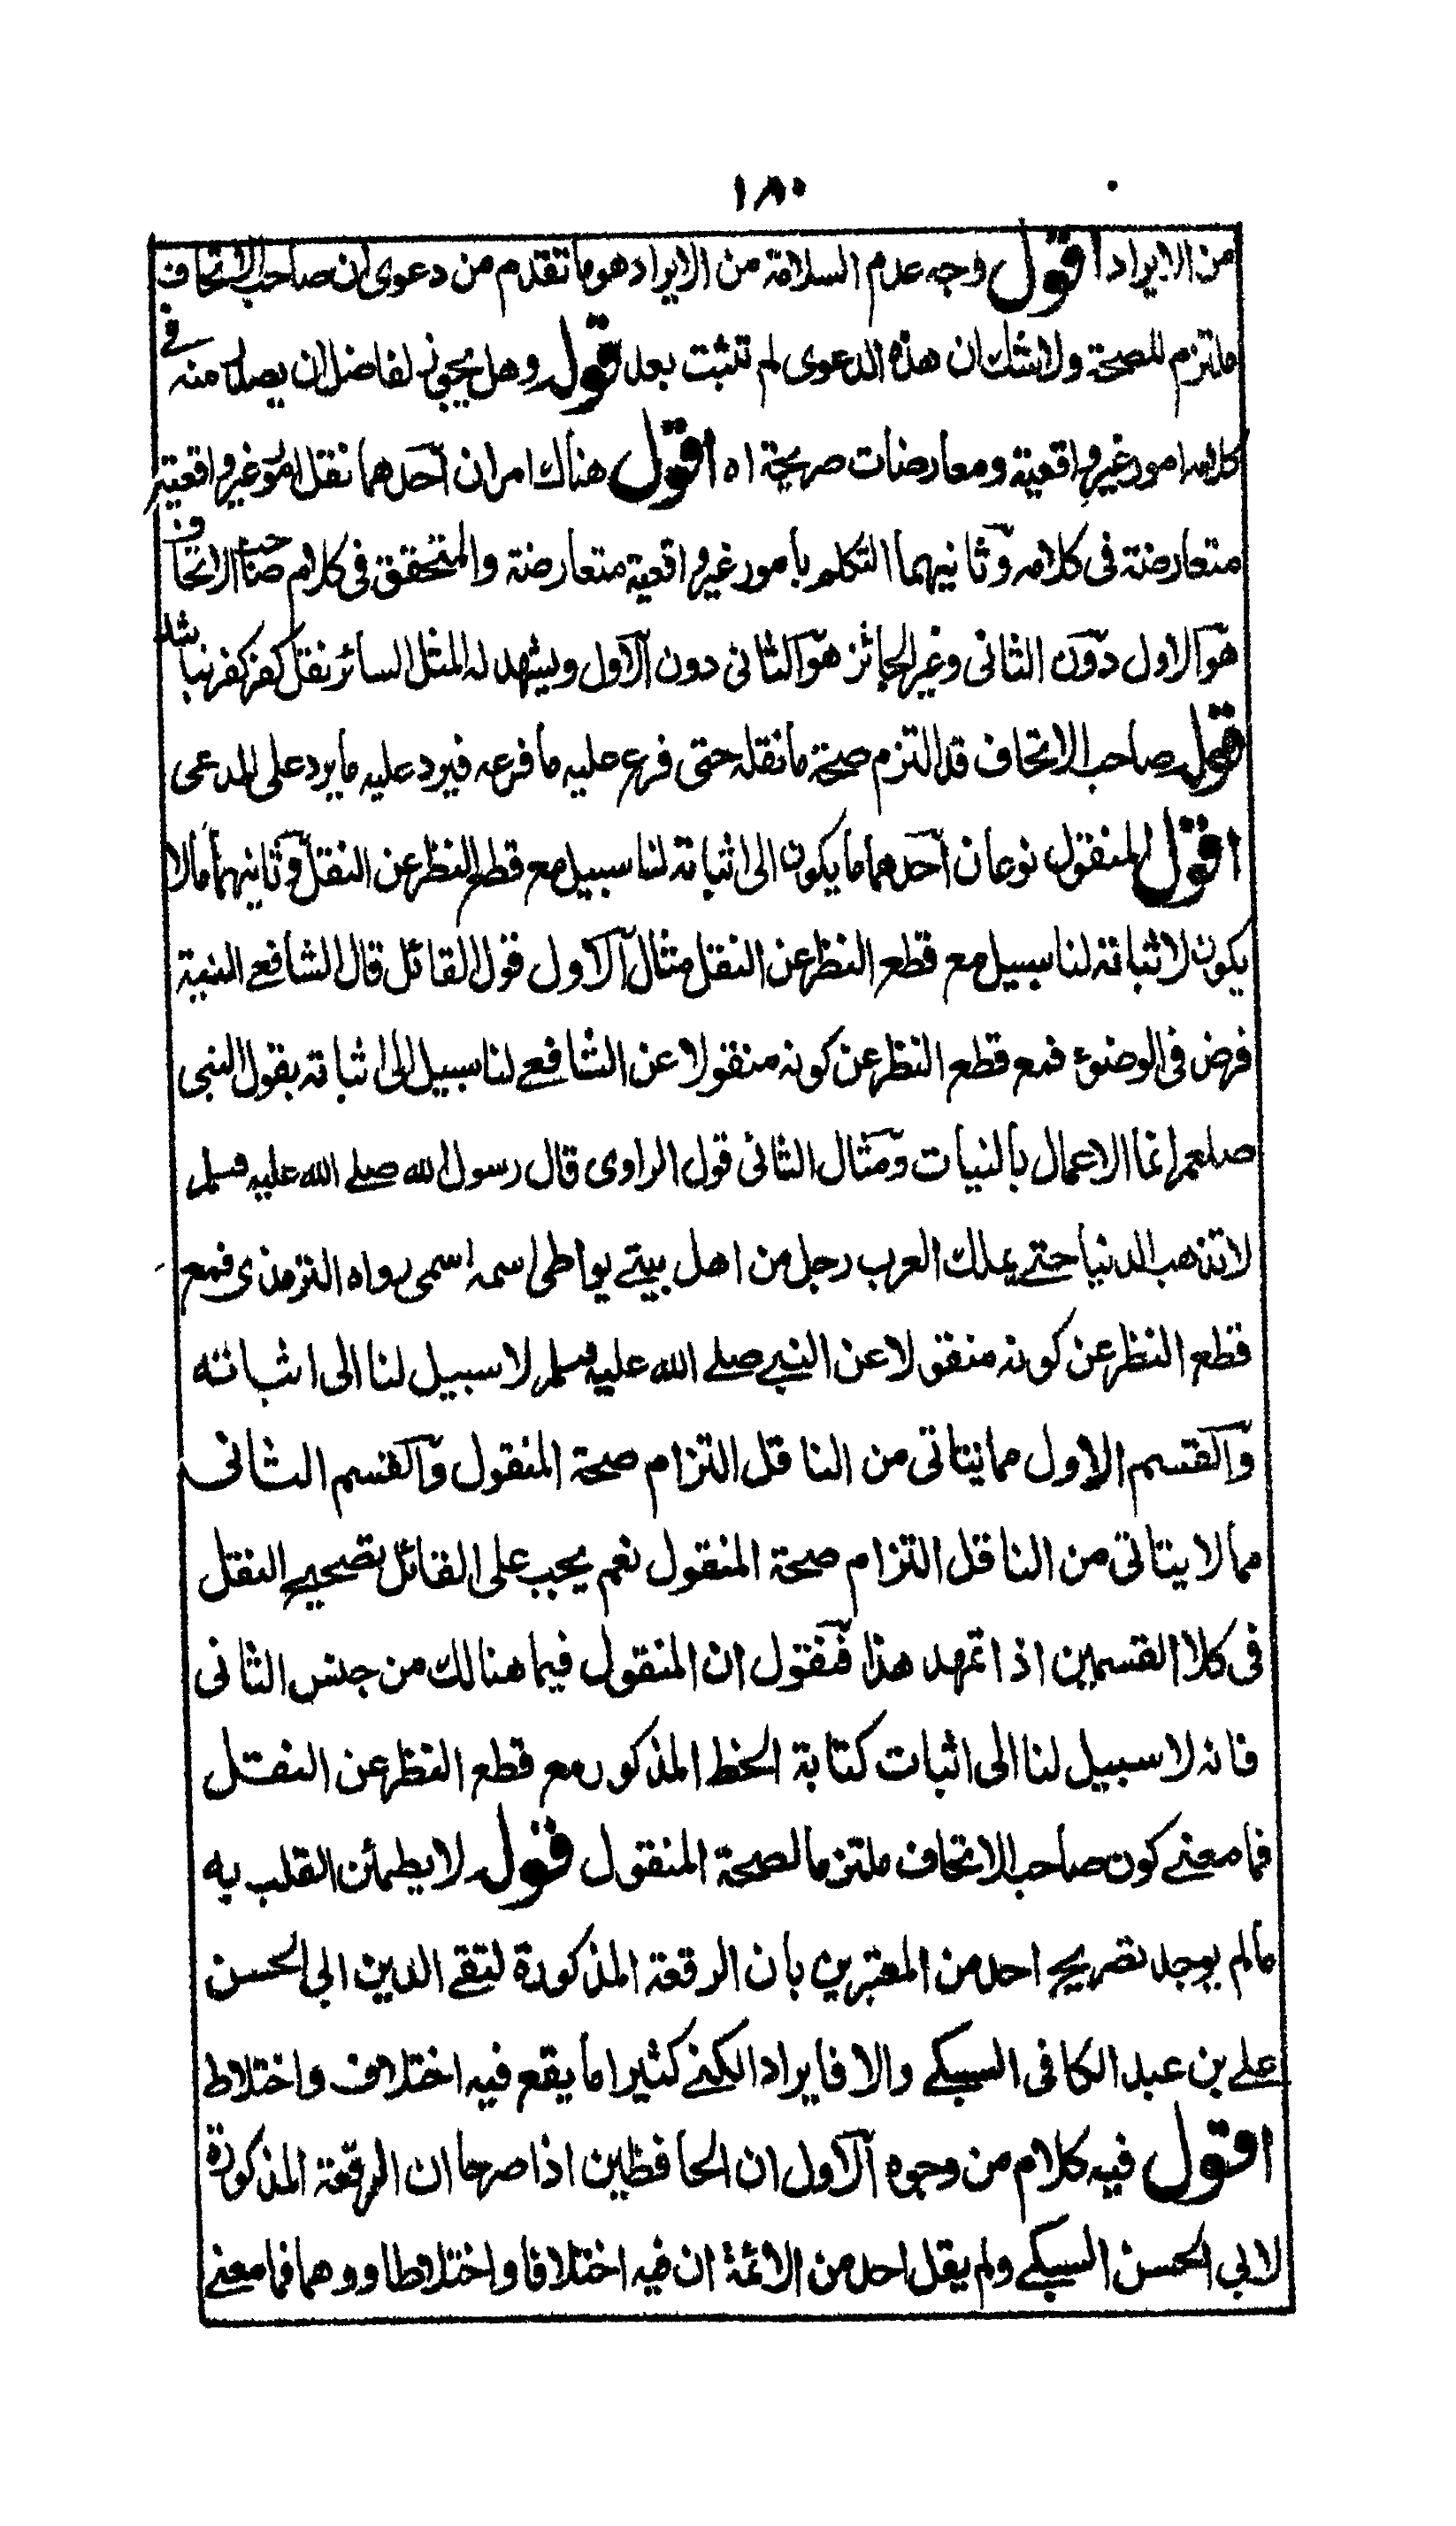 ١٨٠
من الايراد اقول وجه عدم السلامة من الايراد هو ما تقدم من دعوى ان صاحب الاتحاف
ملتزم للصحة ولا شك ان هذه الدعوى لم تثبت بعد قوله وهل يجوز لفاضل ان يصدر منه في
كلامه امور غير واقعية ومعارضات صريحة اه اقول هناك امران احدهما نقل امور غير واقعية
متعارضة فى كلامه وثانيهما التكلم بامور غير واقعية متعارضة والمتحقق فى كلام صاحب الاتحاف
هو الاول دون الثانى وغير الجائز هو الثانى دون الاول ويشهد له المثل السائر نقل كفر كفر نباشد
قوله صاحب الاتحاف قد التزم صحة ما نقله حتى فرع عليه ما فرعه فيرد عليه ما يرد على المدعى
اقول المنقول نوعان احدهما ما يكون الى اثباته لنا سبيل مع قطع النظر عن النقل وثانيهما ما لا
يكون لاثباته لنا سبيل مع قطع النظر عن النقل مثال الاول قول القائل قال الشافعے النية
فرض فى الوضوء فمع قطع النظر عن كونه منقولا عن الشافعے لنا سبيل الى اثباته بقول النبى
صلعم انما الاعمال بالنيات ومثال الثانى قول الراوى قال رسول الله صلے الله عليه وسلم
لا تذهب الدنيا حتے يملك العرب رجل من اهل بيتے يواطى اسمه اسمى رواه الترمذى فمع
قطع النظر عن كونه منقولا عن النبے صلے الله عليه وسلم لا سبيل لنا الى اثباته
والقسم الاول مما يتاتى من الناقل التزام صحة المنقول والقسم الثانى
مما لا يتاتى من الناقل التزام صحة المنقول نعم يجب على القائل تصحيح النقل
فى كلا القسمين اذا تمهد هذا فنقول ان المنقول فيما هنالك من جنس الثانى
فانه لا سبيل لنا الى اثبات كتابة الخط المذكور مع قطع النظر عن النقل
فما معنے كون صاحب الاتحاف ملتزما لصحة المنقول قوله لا يطمئن القلب به
ما لم يوجد تصريح احد من المعتبرين بان الرقعة المذكورة لتقے الدين ابى الحسن
علے بن عبد الكافى السبكے والا فايراد الكنے كثيرا ما يقع فيه اختلاف واختلاط
اقول فيه كلام من وجوه الاول ان الحافظين اذا صرحا ان الرقعة المذكورة
لابى الحسن السبكے ولم يقل احد من الائمة ان فيه اختلافا واختلاطا ووهما فما معنے